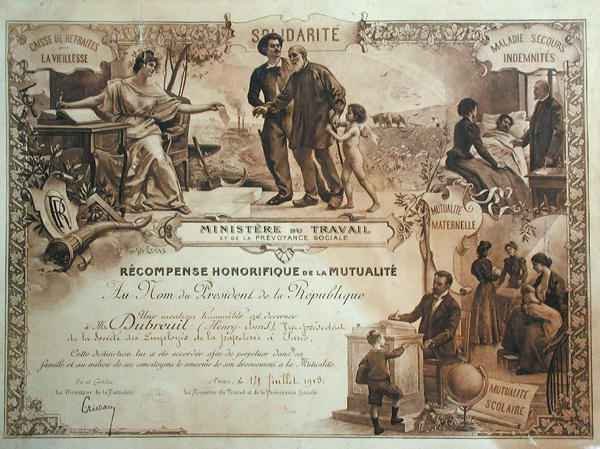 SOLIDARITÉ
CAISSE DE RETRAITES
POUR
LA VIEILLESSE
MALADIE SECOURS
INDEMNITÉS
MUTUALITÉ
MATERNELLE
RF
MINISTÈRE DU TRAVAIL
ET DE LA PRÉVOYANCE SOCIALE
RÉCOMPENSE HONORIFIQUE DE LA MUTUALITÉ
Au Nom du Président de la République
Une mention honorable est décernée
à Mr Dubreuil (Henry Vice-président
de la Société des Employés de la papeterie à Paris
Cette distinction lui a été accordée afin de perpétuer dans sa
famille et au milieu de ses concitoyens le souvenir de son dévouement à la Mutualité.
Paris, le 14 Juillet 1913.
Le Directeur de la Mutualité
Le Ministre du Travail et de la Prévoyance Sociale
MUTUALITÉ
SCOLAIRE